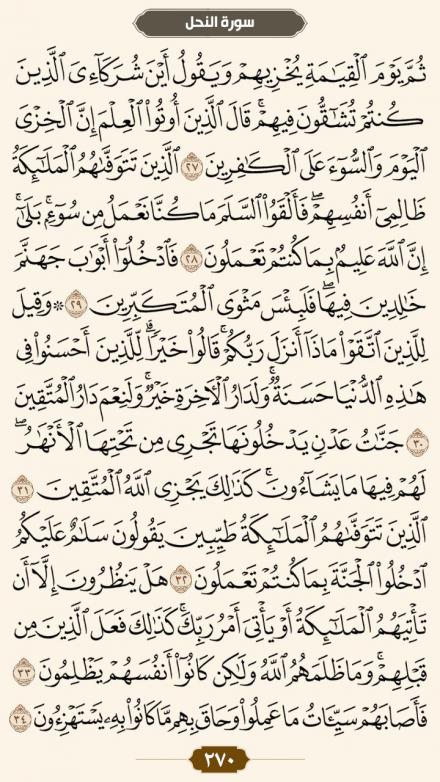 سورة النحل
ثُمَّ يَوْمَ ٱلْقِيَٰمَةِ يُخْزِيهِمْ وَيَقُولُ أَيْنَ شُرَكَآءِىَ ٱلَّذِينَ
كُنتُمْ تُشَٰٓقُّونَ فِيهِمْ ۚ قَالَ ٱلَّذِينَ أُوتُوا۟ ٱلْعِلْمَ إِنَّ ٱلْخِزْىَ
ٱلْيَوْمَ وَٱلسُّوٓءَ عَلَى ٱلْكَٰفِرِينَ ٢٧ ٱلَّذِينَ تَتَوَفَّىٰهُمُ ٱلْمَلَٰٓئِكَةُ
ظَالِمِىٓ أَنفُسِهِمْ ۖ فَأَلْقَوُا۟ ٱلسَّلَمَ مَا كُنَّا نَعْمَلُ مِن سُوٓءٍۭ ۚ بَلَىٰٓ ۚ
إِنَّ ٱللَّهَ عَلِيمٌۢ بِمَا كُنتُمْ تَعْمَلُونَ ٢٨ فَٱدْخُلُوٓا۟ أَبْوَٰبَ جَهَنَّمَ
خَٰلِدِينَ فِيهَا ۖ فَلَبِئْسَ مَثْوَى ٱلْمُتَكَبِّرِينَ ٢٩ ۞ وَقِيلَ
لِلَّذِينَ ٱتَّقَوْا۟ مَاذَآ أَنزَلَ رَبُّكُمْ ۚ قَالُوا۟ خَيْرًا ۗ لِّلَّذِينَ أَحْسَنُوا۟ فِى
هَٰذِهِ ٱلدُّنْيَا حَسَنَةٌ ۚ وَلَدَارُ ٱلْءَاخِرَةِ خَيْرٌ ۚ وَلَنِعْمَ دَارُ ٱلْمُتَّقِينَ
٣٠ جَنَّٰتُ عَدْنٍ يَدْخُلُونَهَا تَجْرِى مِن تَحْتِهَا ٱلْأَنْهَٰرُ ۖ
لَهُمْ فِيهَا مَا يَشَآءُونَ ۚ كَذَٰلِكَ يَجْزِى ٱللَّهُ ٱلْمُتَّقِينَ ٣١
ٱلَّذِينَ تَتَوَفَّىٰهُمُ ٱلْمَلَٰٓئِكَةُ طَيِّبِينَ ۙ يَقُولُونَ سَلَٰمٌ عَلَيْكُمُ
ٱدْخُلُوا۟ ٱلْجَنَّةَ بِمَا كُنتُمْ تَعْمَلُونَ ٣٢ هَلْ يَنظُرُونَ إِلَّآ أَن
تَأْتِيَهُمُ ٱلْمَلَٰٓئِكَةُ أَوْ يَأْتِىَ أَمْرُ رَبِّكَ ۚ كَذَٰلِكَ فَعَلَ ٱلَّذِينَ مِن
قَبْلِهِمْ ۚ وَمَا ظَلَمَهُمُ ٱللَّهُ وَلَٰكِن كَانُوٓا۟ أَنفُسَهُمْ يَظْلِمُونَ ٣٣
فَأَصَابَهُمْ سَيِّـَٔاتُ مَا عَمِلُوا۟ وَحَاقَ بِهِم مَّا كَانُوا۟ بِهِۦ يَسْتَهْزِءُونَ ٣٤
٢٧٠